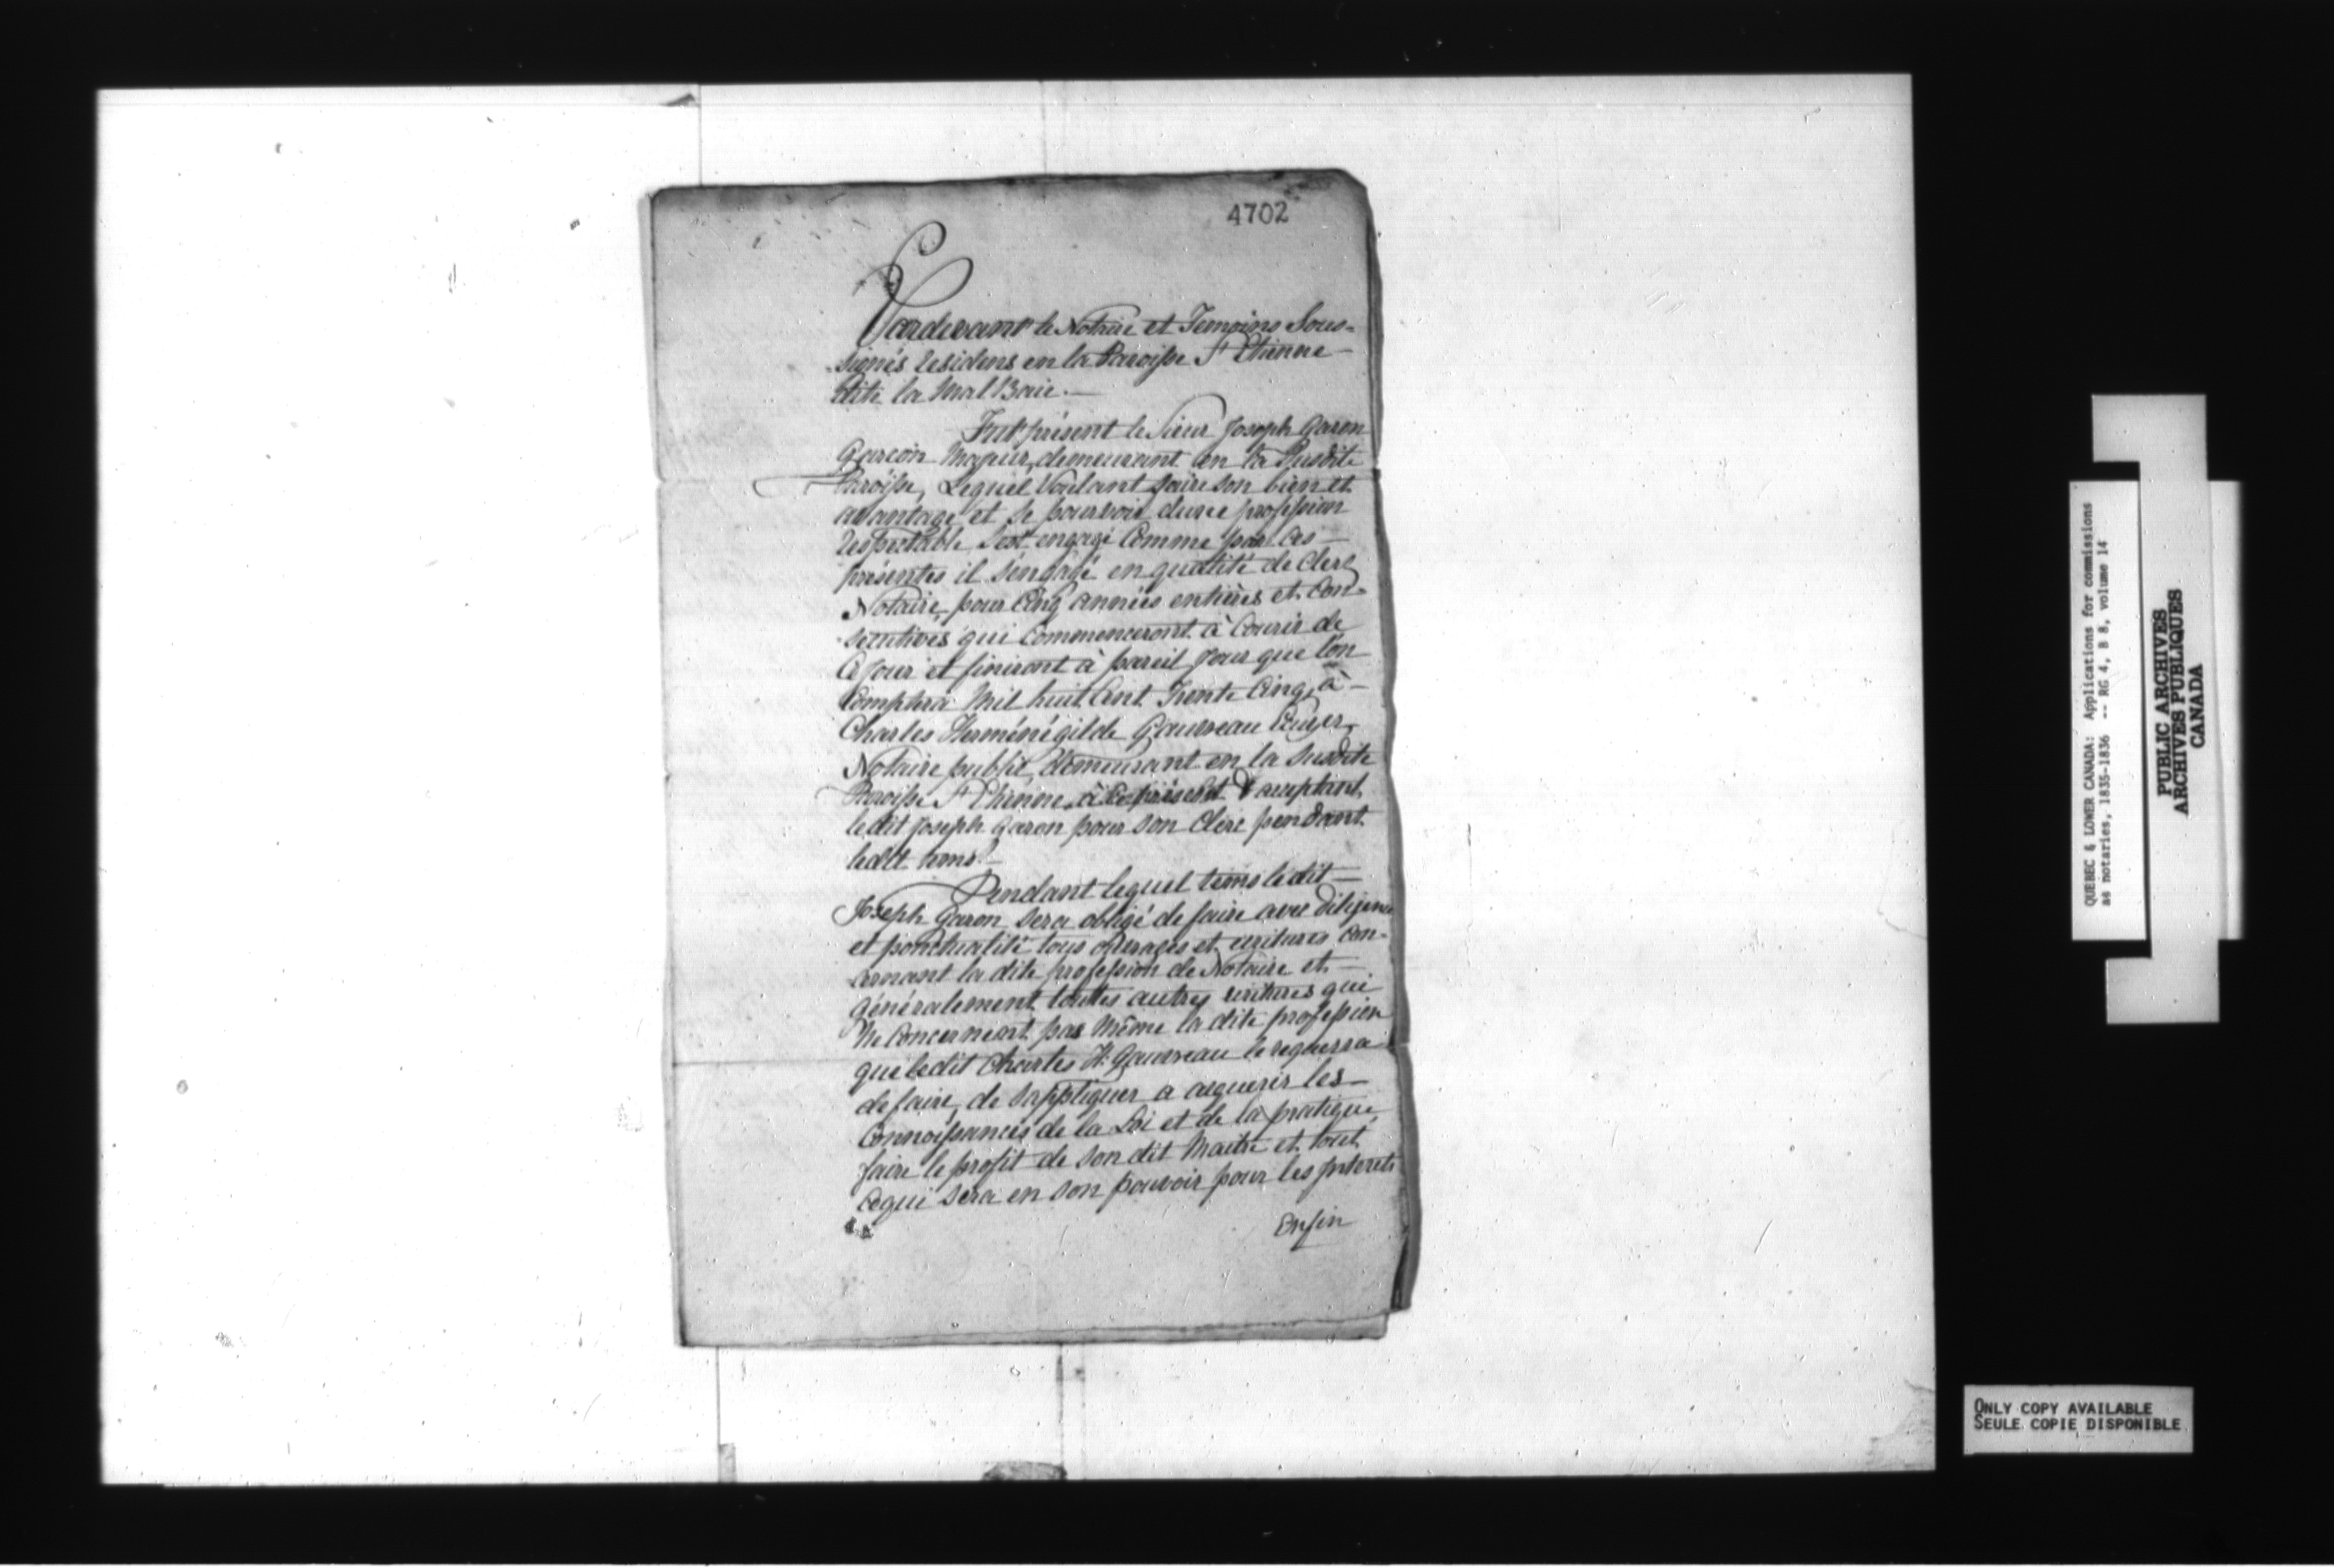 4702
Pardevant le Notaire et Temoins Sous=
signés residens en la Paroisse St Etienne
dite la Mal Baie.
Fut présent le Sieur Joseph Garon
Garcon Majeur, demeurant en la Susdite
Paroisse, Lequel Voulant faire son bien et
avantage et se pourvoir d'une profession
respectable s'est engagé Comme par Ces
présentes il s'engage en qualité de Clerc
Notaire, pour Cinq années entières et Con=
sécutives qui Commenceront à Courir de
Ce jour et finiront à pareil Jour que l'on
Comptera Mil huit Cent Trente Cinq, à
Charles Herménégilde Gauvreau Ecuyer,
Notaire public, demeurant en la Susdite
Paroisse St Etienne, à Ce présent & acceptant
le dit Joseph Garon pour son Clerc pendant
ledit tems.
Pendant lequel tems le dit
Joseph Garon sera obligé de faire avec diligence
et ponctualité tous ouvrages et ecritures con-
cernant la dite profession de Notaire et
généralement touttes autres ecritures qui
Ne Concernent pas Même la dite profession
que ledit Charles H. Gauvreau le requerra
de faire, de sappliquer a acquerir les
Connoissances de la Loi et de la pratique,
faire le profit de son dit Maitre et tout
ce qui sera en son pouvoir pour les Interets
Enfin
QUEBEC & LOWER CANADA: Applications for commissions
as notaries, 1835-1836 -- RG 4, B 8, volume 14
PUBLIC ARCHIVES
ARCHIVES PUBLIQUES
CANADA
ONLY COPY AVAILABLE
SEULE COPIE DISPONIBLE